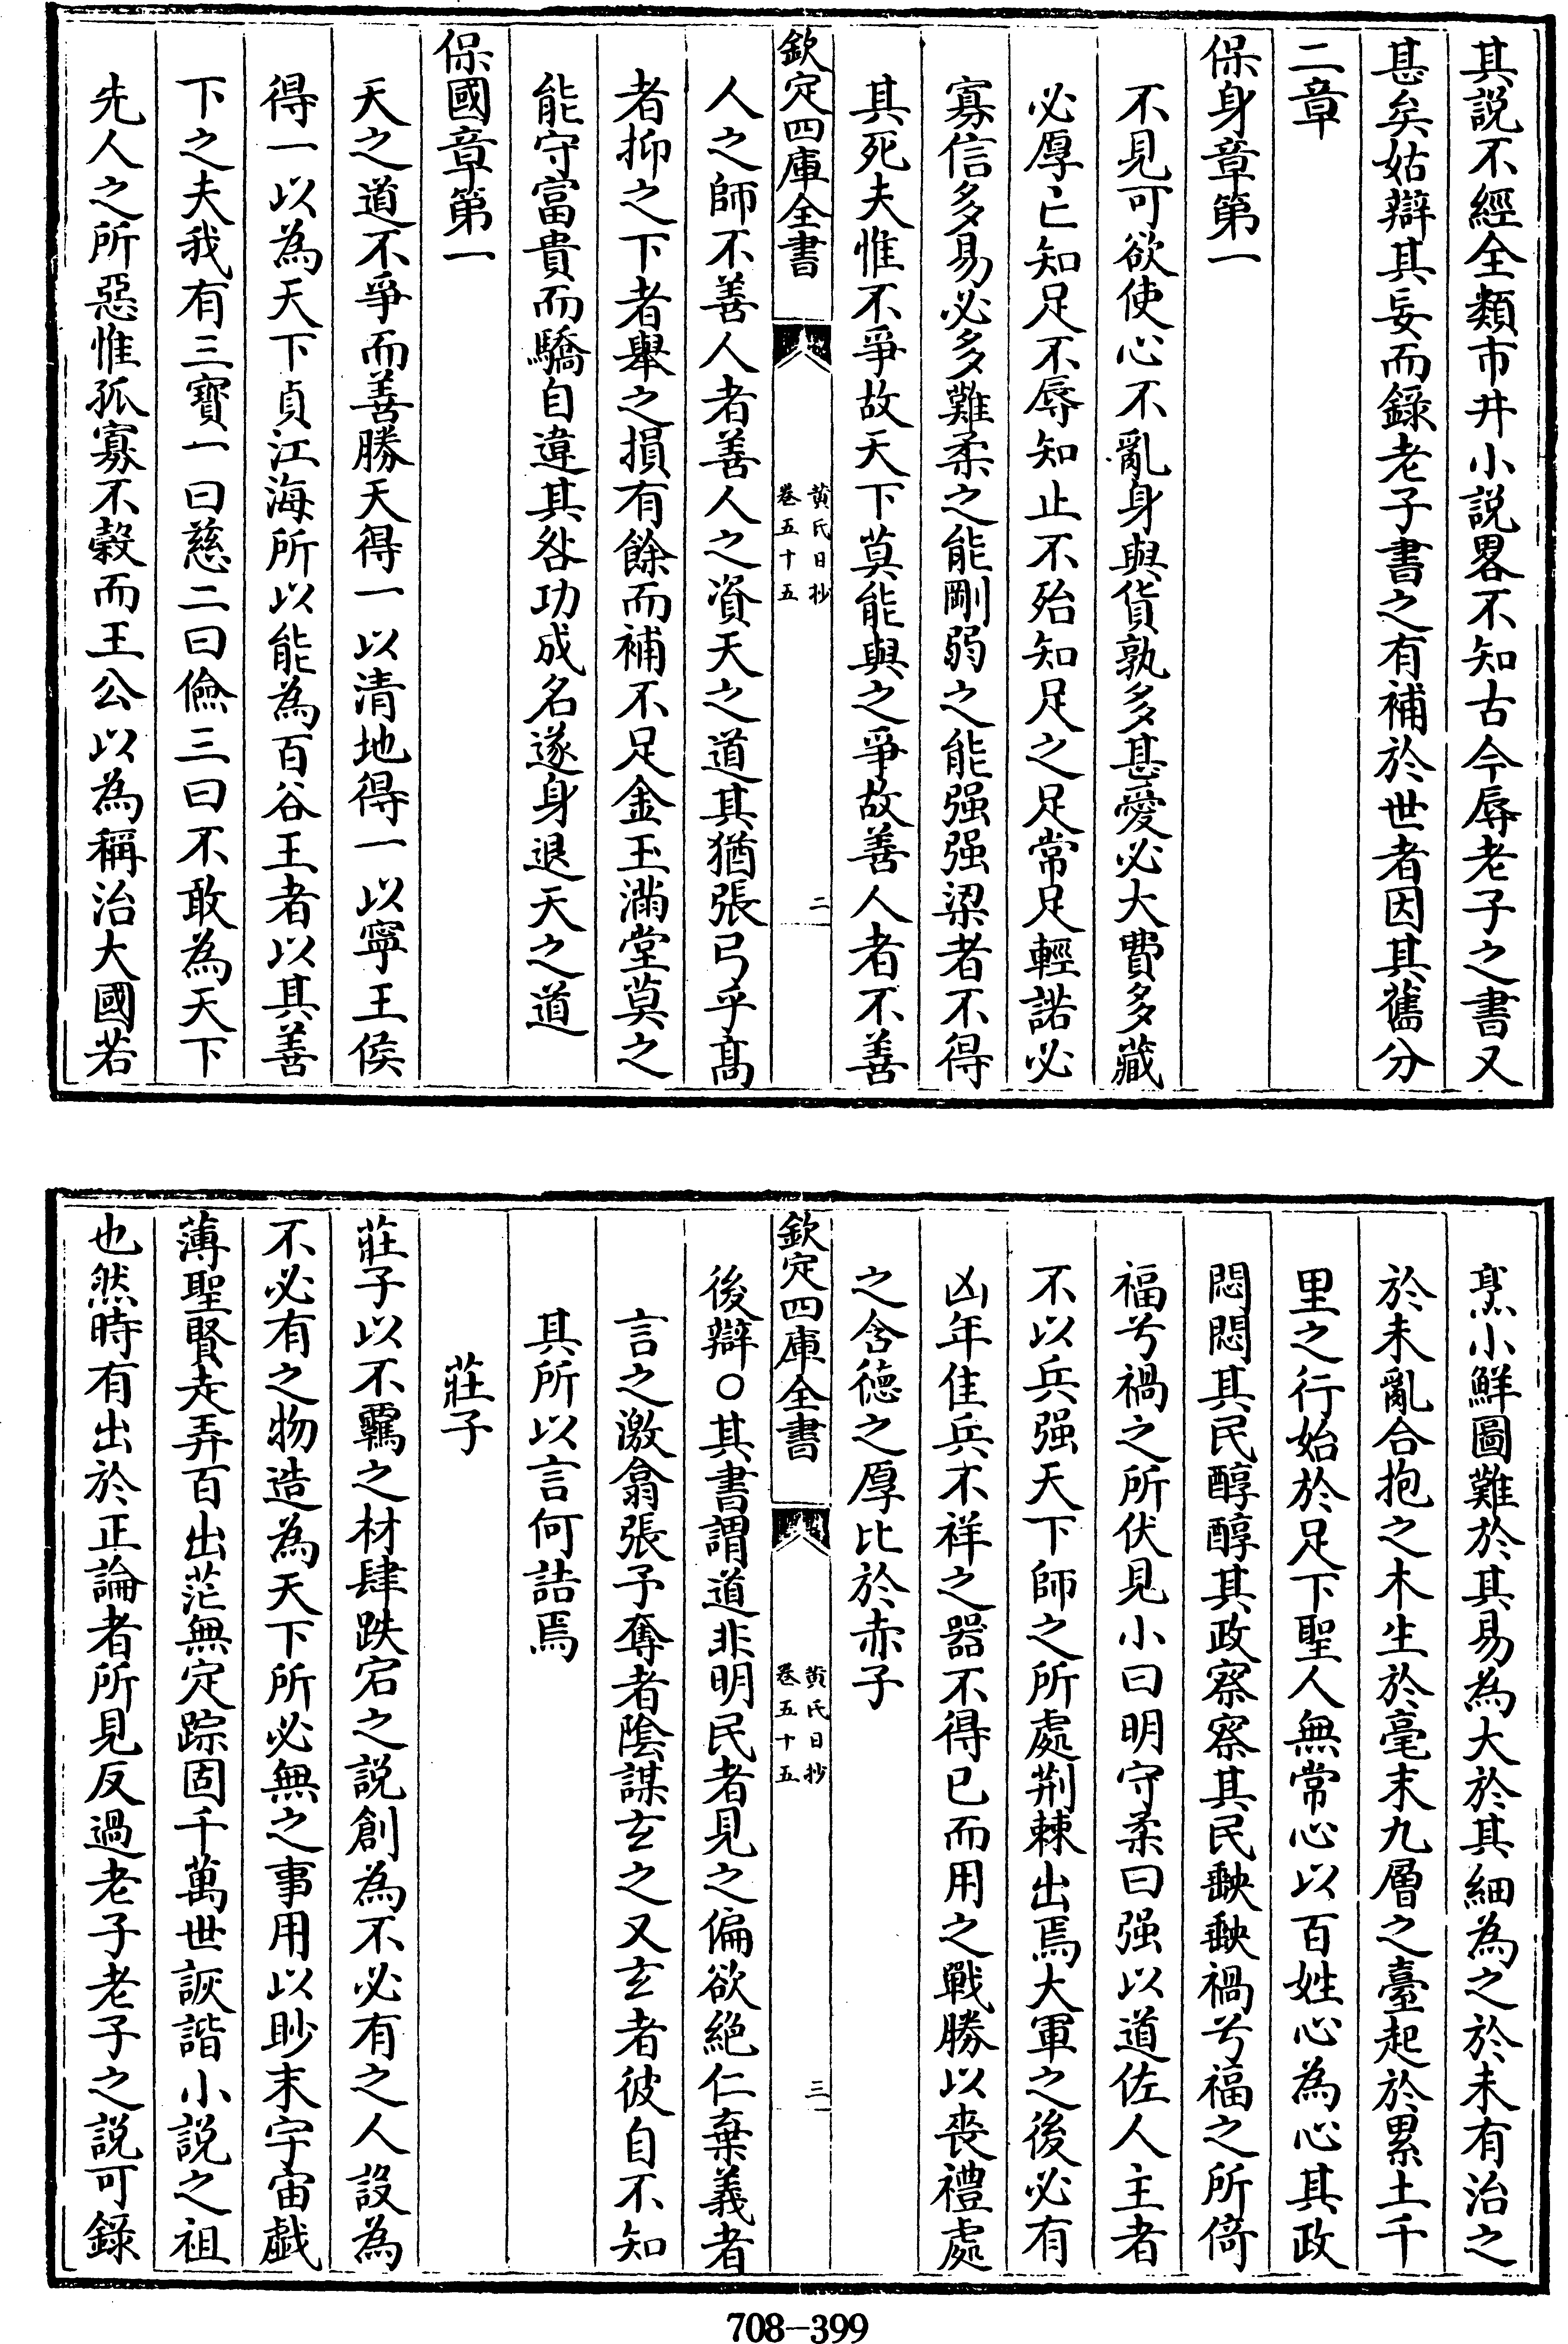 其説不經全類市井小説畧不知古今辱老子之書又
甚矣姑辯其妄而錄老子書之有補於世者因其舊分
二章
保身章第一
不見可欲使心不亂身與貨孰多甚愛必大費多藏
必厚亡知足不辱知止不殆知足之足常足輕諾必
寡信多易必多難柔之能剛弱之能强强梁者不得
其死夫惟不爭故天下莫能與之爭故善人者不善
欽定四庫全書
黄氏日抄
卷五十五
二
人之師不善人者善人之資天之道其猶張弓乎高
者抑之下者舉之損有餘而補不足金玉滿堂莫之
能守富貴而驕自違其咎功成名遂身退天之道
保國章第一
天之道不爭而善勝天得一以清地得一以寧王侯
得一以為天下貞江海所以能為百谷王者以其善
下之夫我有三寳一曰慈二曰儉三曰不敢為天下
先人之所惡惟孤寡不穀而王公以為稱治大國若
烹小鮮圖難於其易為大於其細為之於未有治之
於未亂合抱之木生於毫末九層之臺起於累土千
里之行始於足下聖人無常心以百姓心為心其政
悶悶其民醇醇其政察察其民缺缺禍兮福之所倚
福兮禍之所伏見小曰明守柔曰强以道佐人主者
不以兵强天下師之所處荆棘出焉大軍之後必有
凶年佳兵不祥之器不得已而用之戰勝以喪禮處
之含德之厚比於赤子
欽定四庫全書
黄氏日抄
卷五十五
三
後辯○其書謂道非明民者見之偏欲絶仁棄義者
言之激翕張予奪者陰謀玄之又玄者彼自不知
其所以言何詰焉
莊子
莊子以不羈之材肆跌宕之説創為不必有之人設為
不必有之物造為天下所必無之事用以眇末宇宙戲
薄聖賢走弄百出茫無定踪固千萬世詼諧小説之祖
也然時有出於正論者所見反過老子老子之説可錄
708-399